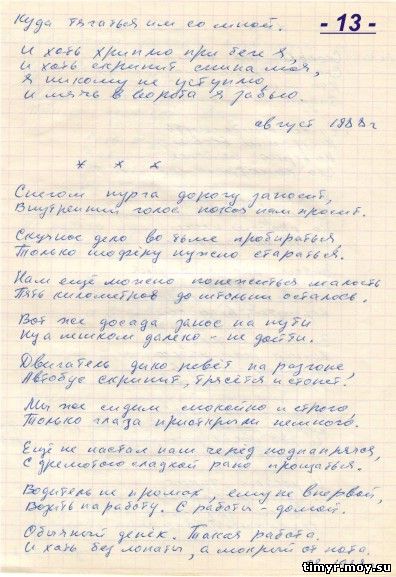 куда тягаться им со мной.
- 13 -
И хоть хриплю при беге я,
И хоть скрипит спина моя,
Я никому не уступлю
И мячь в ворота я забью.
август 1988г
* * *
Снегом пурга дорогу заносит,
Внутренний голос покоя нам просит.
Скучное дело во тьме пробираться
Только шофёру нужно стараться.
Нам ещё можно понежиться малость
Пять километров до штольни осталось.
Вот же досада занос на пути
Ну а пешком далеко - не дойти.
Двигатель дико ревёт на разгоне,
Автобус скрипит, трясётся и стонет.
Мы же сидим спокойно и строго,
Только глаза приоткрыли немного.
Ещё не настал наш черёд поднапрячся,
С дремотою сладкой рано прощаться.
Водитель не промах, ему не впервой,
Возить на работу. С работы - домой.
Обычный денёк. Такая работа.
И хоть без лопаты, а мокрый от пота.
timyr.moy.su